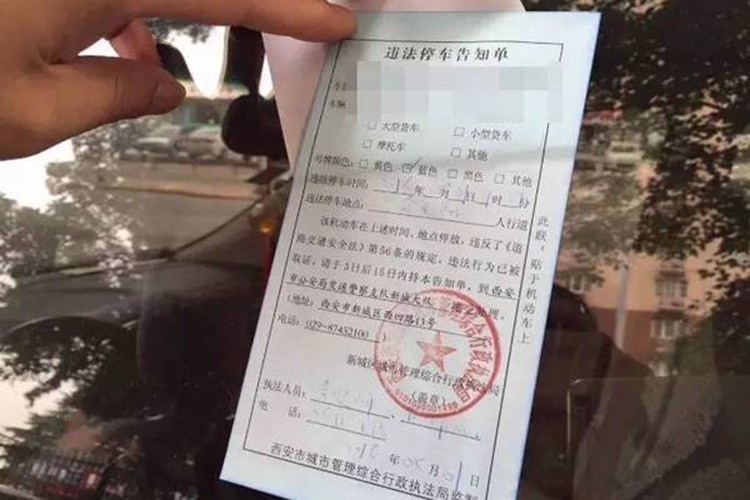 违法停车告知单
车辆
□ 大型货车 □ 小型货车
□ 摩托车 □ 其他
号牌颜色：□ 黄色 □ 蓝色 □ 黑色 □ 其他
违法停车时间： 年 月 日 时 分
违法停车地点： 人行道
该机动车在上述时间、地点停放，违反了《道
路交通安全法》第56条的规定，违法行为已被
取证，请于3日后15日内持本告知单，到西安
市公安局交通警察支队新城大队 接受处理。
（地址：西安市新城区西四路13号
电话：029-87452100 ）
新城区城市管理综合行政执法局
（盖章）
执法人员：
电 话：
年 05 月 01 日
西安市城市管理综合行政执法局监制
此联：贴于机动车上